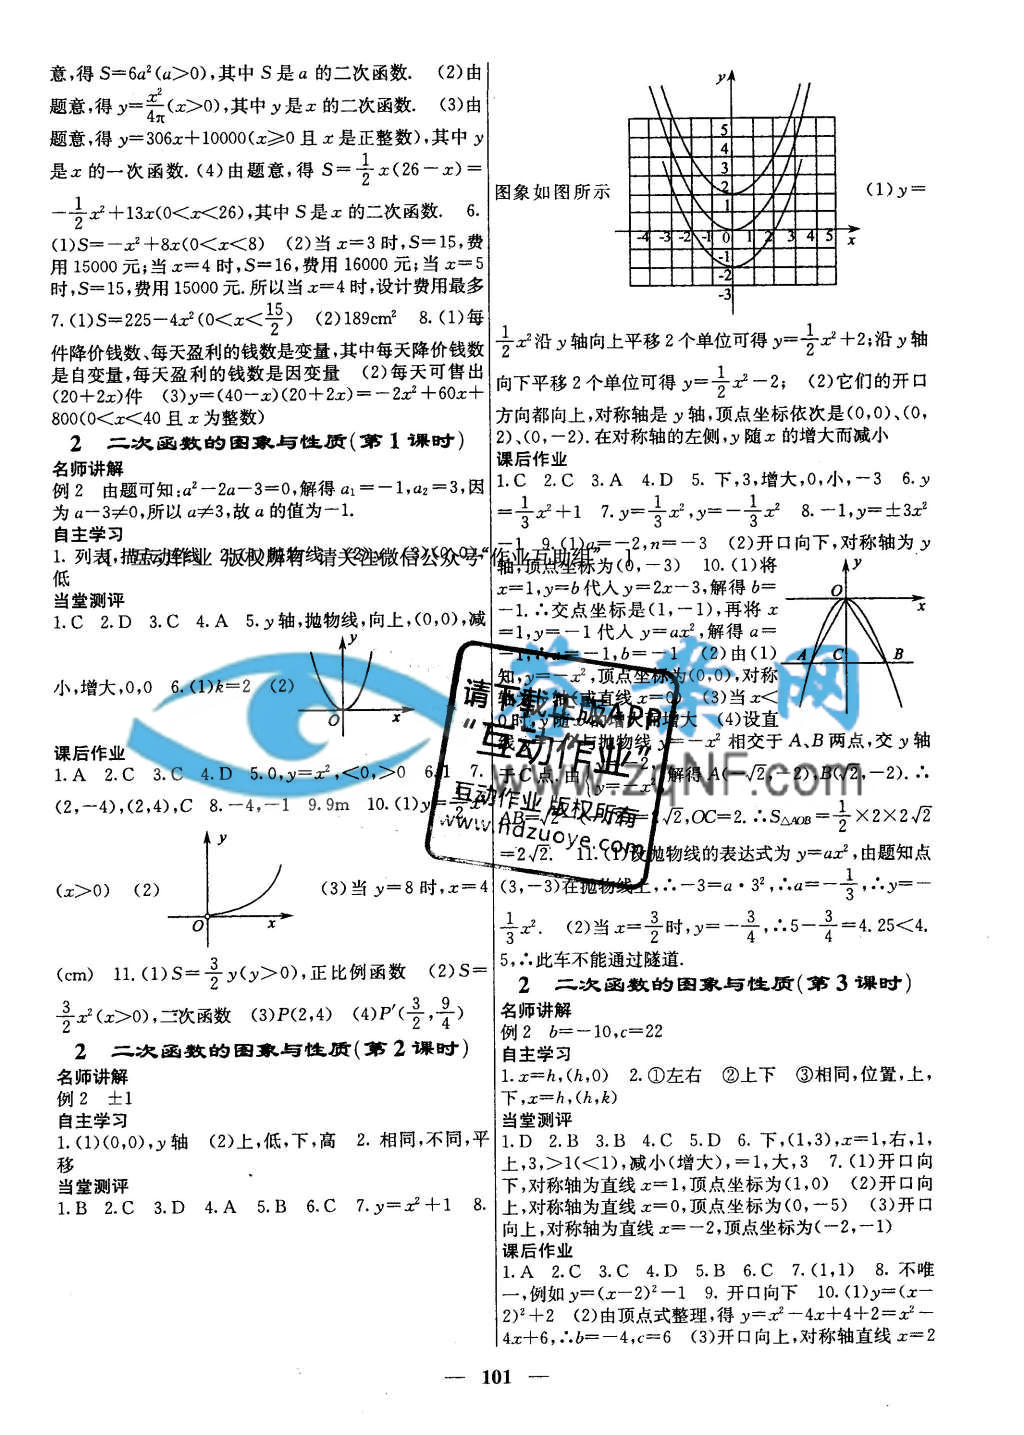 意,得 S=6a²(a>0),其中 S 是 a 的二次函数. (2)由
题意,得 y=x²/4π(x>0),其中 y 是 x 的二次函数. (3)由
题意,得 y=306x+10000(x≥0 且 x 是正整数),其中 y
是 x 的一次函数.(4)由题意,得 S=1/2x(26-x)=
-1/2x²+13x(0<x<26),其中 S 是 x 的二次函数. 6.
(1)S=-x²+8x(0<x<8) (2)当 x=3 时,S=15,费
用 15000 元;当 x=4 时,S=16,费用 16000 元;当 x=5
时,S=15,费用 15000 元.所以当 x=4 时,设计费用最多
7.(1)S=225-4x²(0<x<15/2) (2)189cm² 8.(1)每
件降价钱数、每天盈利的钱数是变量,其中每天降价钱数
是自变量,每天盈利的钱数是因变量 (2)每天可售出
(20+2x)件 (3)y=(40-x)(20+2x)=-2x²+60x+
800(0<x<40 且 x 为整数)
2 二次函数的图象与性质(第 1 课时)
名师讲解
例 2 由题可知:a²-2a-3=0,解得 a₁=-1,a₂=3,因
为 a-3≠0,所以 a≠3,故 a 的值为-1.
自主学习
1. 列表,描点,连线 2.(1)抛物线 (2)y (3)(0,0)
低
当堂测评
1.C 2.D 3.C 4.A 5.y 轴,抛物线,向上,(0,0),减
小,增大,0,0 6.(1)k=2 (2)
y
O x
课后作业
1.A 2.C 3.C 4.D 5.0,y=x²,<0,>0 6.1 7.
(2,-4),(2,4),C 8.-4,-1 9.9m 10.(1)y=1/2x²
y
(x>0) (2)
O x
(3)当 y=8 时,x=4
(cm) 11.(1)S=3/2y(y>0),正比例函数 (2)S=
3/2x²(x>0),二次函数 (3)P(2,4) (4)P′(3/2,9/4)
2 二次函数的图象与性质(第 2 课时)
名师讲解
例 2 ±1
自主学习
1.(1)(0,0),y 轴 (2)上,低,下,高 2. 相同,不同,平
移
当堂测评
1.B 2.C 3.D 4.A 5.B 6.C 7.y=x²+1 8.
图象如图所示
y
5
4
3
2
1
-4 -3 -2 -1 0 1 2 3 4 5 x
-1
-2
-3
(1)y=
1/2x²沿 y 轴向上平移 2 个单位可得 y=1/2x²+2;沿 y 轴
向下平移 2 个单位可得 y=1/2x²-2; (2)它们的开口
方向都向上,对称轴是 y 轴,顶点坐标依次是(0,0)、(0,
2)、(0,-2).在对称轴的左侧,y 随 x 的增大而减小
课后作业
1.C 2.C 3.A 4.D 5. 下,3,增大,0,小,-3 6.y
=1/3x²+1 7.y=1/3x²,y=-1/3x² 8.-1,y=±3x²
-1 9.(1)a=-2,n=-3 (2)开口向下,对称轴为 y
轴,顶点坐标为(0,-3) 10.(1)将
x=1,y=b 代入 y=2x-3,解得 b=
-1.∴交点坐标是(1,-1),再将 x
=1,y=-1 代入 y=ax²,解得 a=
-1,∴a=-1,b=-1 (2)由(1)
知,y=-x²,顶点坐标为(0,0),对称
轴为 y 轴(或直线 x=0) (3)当 x<
0 时,y 随 x 的增大而增大 (4)设直
y
O x
A C B
y=-2与抛物线 y=-x² 相交于 A、B 两点,交 y 轴
于 C 点.由 y=-2, y=-x² 解得 A(-√2,-2),B(√2,-2).∴
AB=√2-(-√2)=2√2,OC=2.∴S△AOB=1/2×2×2√2
=2√2. 11.(1)设抛物线的表达式为 y=ax²,由题知点
(3,-3)在抛物线上,∴-3=a·3²,∴a=-1/3,∴y=-
1/3x². (2)当 x=3/2时,y=-3/4,∴5-3/4=4.25<4.
5,∴此车不能通过隧道.
2 二次函数的图象与性质(第 3 课时)
名师讲解
例 2 b=-10,c=22
自主学习
1.x=h,(h,0) 2.①左右 ②上下 ③相同,位置,上,
下,x=h,(h,k)
当堂测评
1.D 2.B 3.B 4.C 5.D 6. 下,(1,3),x=1,右,1,
上,3,>1(<1),减小(增大),=1,大,3 7.(1)开口向
下,对称轴为直线 x=1,顶点坐标为(1,0) (2)开口向
上,对称轴为直线 x=0,顶点坐标为(0,-5) (3)开口
向上,对称轴为直线 x=-2,顶点坐标为(-2,-1)
课后作业
1.A 2.C 3.C 4.D 5.B 6.C 7.(1,1) 8. 不唯
一,例如 y=(x-2)²-1 9. 开口向下 10.(1)y=(x-
2)²+2 (2)由顶点式整理,得 y=x²-4x+4+2=x²-
4x+6,∴b=-4,c=6 (3)开口向上,对称轴直线 x=2
— 101 —
互动作业 版权所有 请关注微信公众号“作业互助组”
请下载正版APP
“互动作业”
互动作业 版权所有
www.hdzuoye.com
答案网
www.zqNF.com